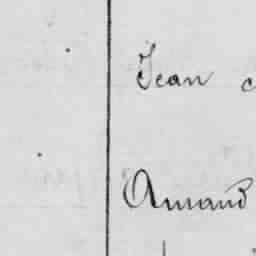 Jean
Amand